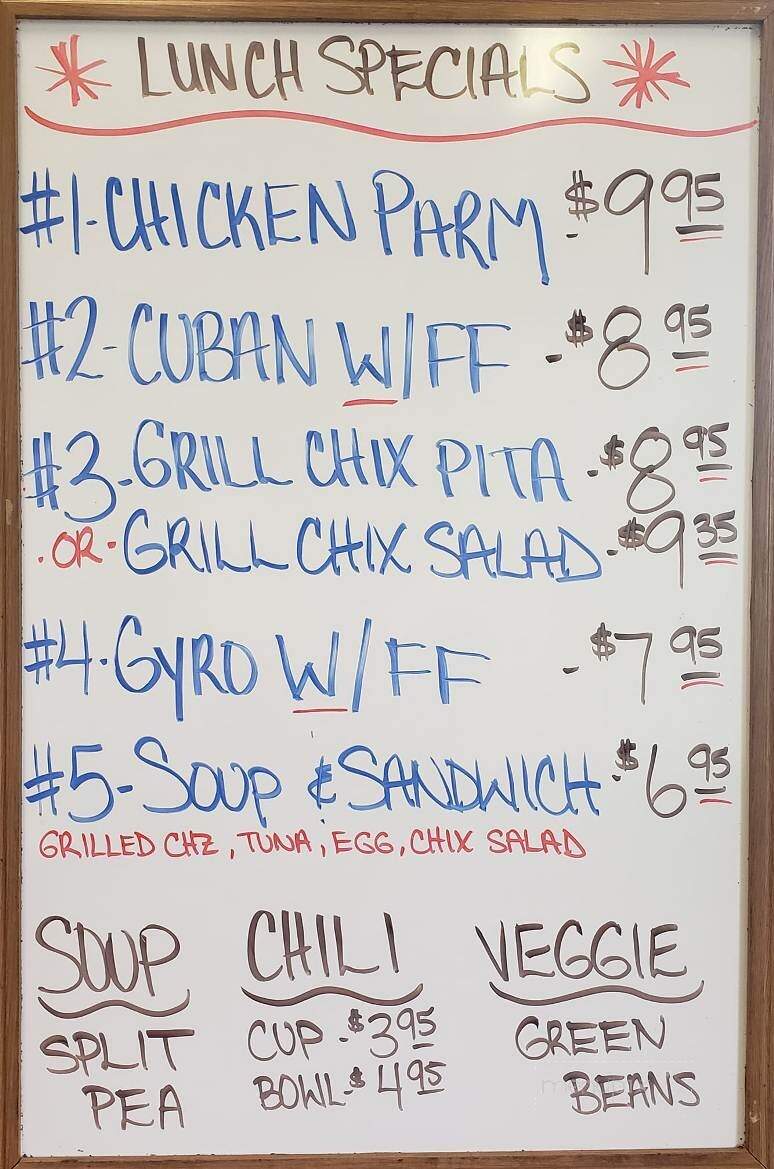 LUNCH SPECIALS
#1-CHICKEN PARM -$9 95
#2-CUBAN W/FF -$8 95
#3-GRILL CHIX PITA -$8 95
·OR·GRILL CHIX SALAD -$9 35
#4·GYRO W/FF -$7 95
#5-SOUP & SANDWICH -$6 95
GRILLED CHZ, TUNA, EGG, CHIX SALAD
SOUP
SPLIT
PEA
CHILI
CUP -$3 95
BOWL-$4 95
VEGGIE
GREEN
BEANS